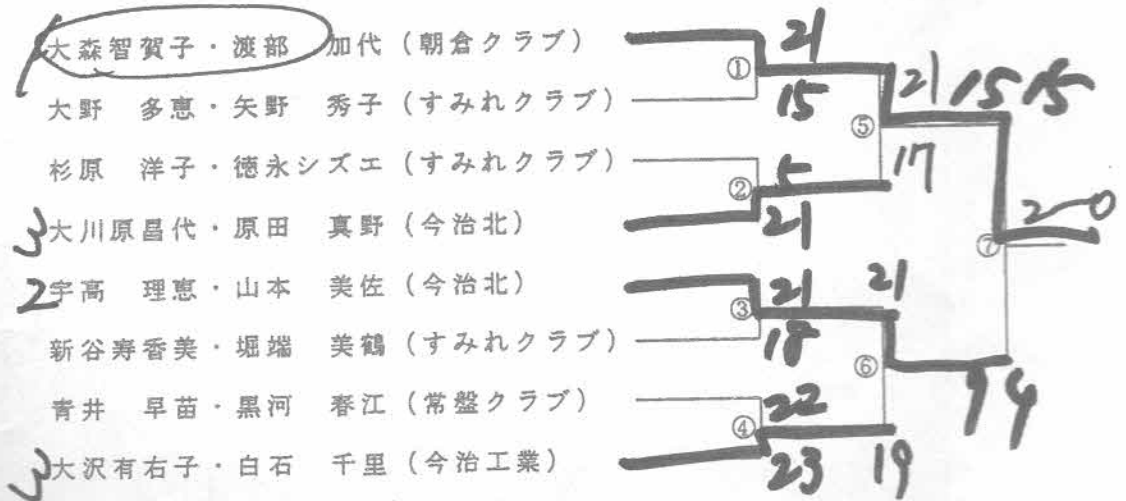 大森智賀子・渡部　加代（朝倉クラブ）
大野　多恵・矢野　秀子（すみれクラブ）
杉原　洋子・徳永シズエ（すみれクラブ）
3 大川原昌代・原田　真野（今治北）
2 宇高　理恵・山本　美佐（今治北）
新谷寿香美・堀端　美鶴（すみれクラブ）
青井　早苗・黒河　春江（常盤クラブ）
3 大沢有右子・白石　千里（今治工業）
① 21 15
② 5 21
③ 21 18
④ 22 23
⑤ 21 17
⑥ 21 19
⑦ 15 15 2-0